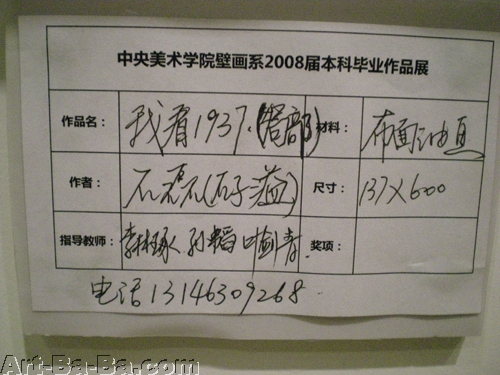 中央美术学院壁画系2008届本科毕业作品展
作品名： 我看1937.(局部) 材料： 布面油画
作者： 石磊石(石子溢) 尺寸： 137×600
指导教师： 孙韬 叶剑青 奖项：
电话13146309268
Art-Ba-Ba.com